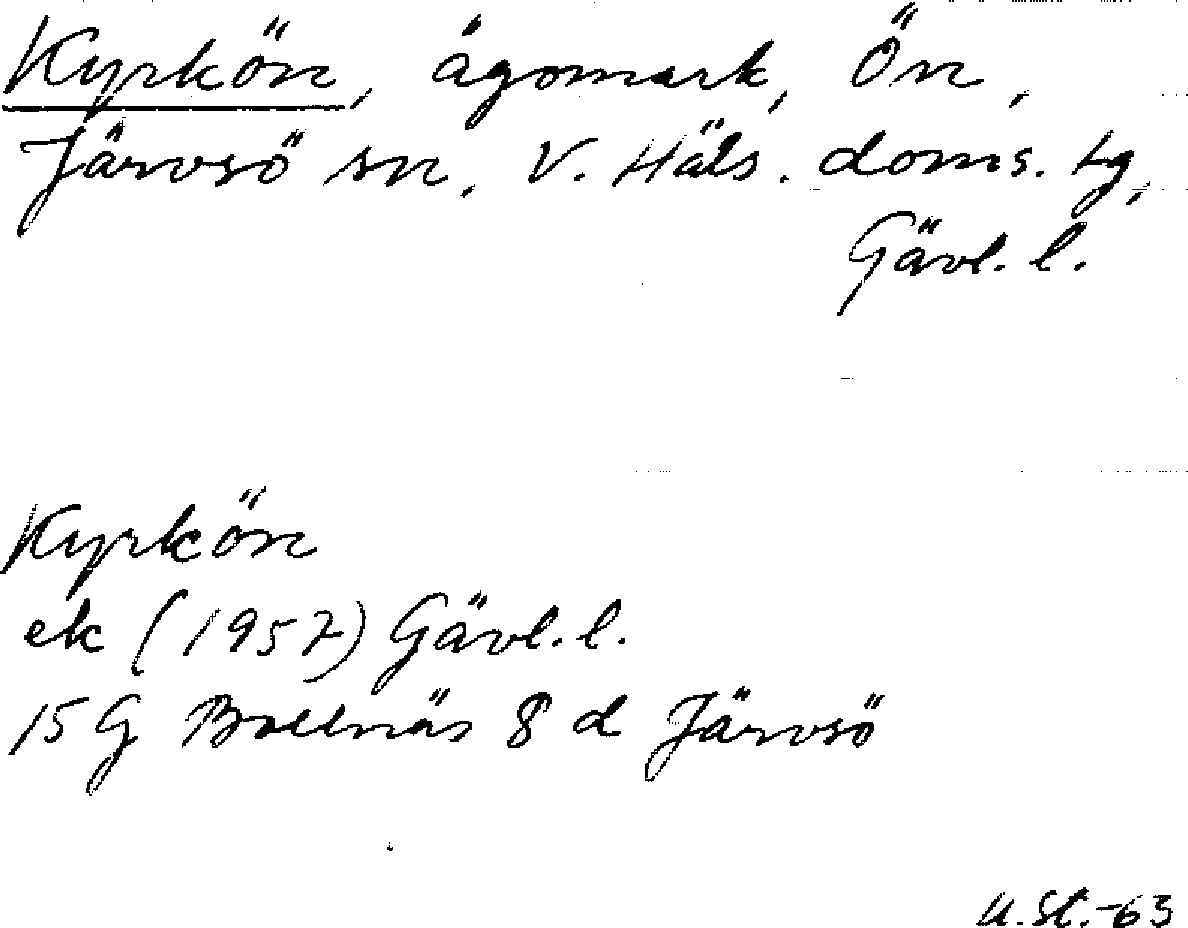 Kyrkön, ägomark, Ön,
Järvsö sn, V. Häls. doms. tg,
Gävl. l.
Kyrkön
ek (1957) Gävl. l.
15 G Bollnäs 8 d Järvsö
U. St. -63